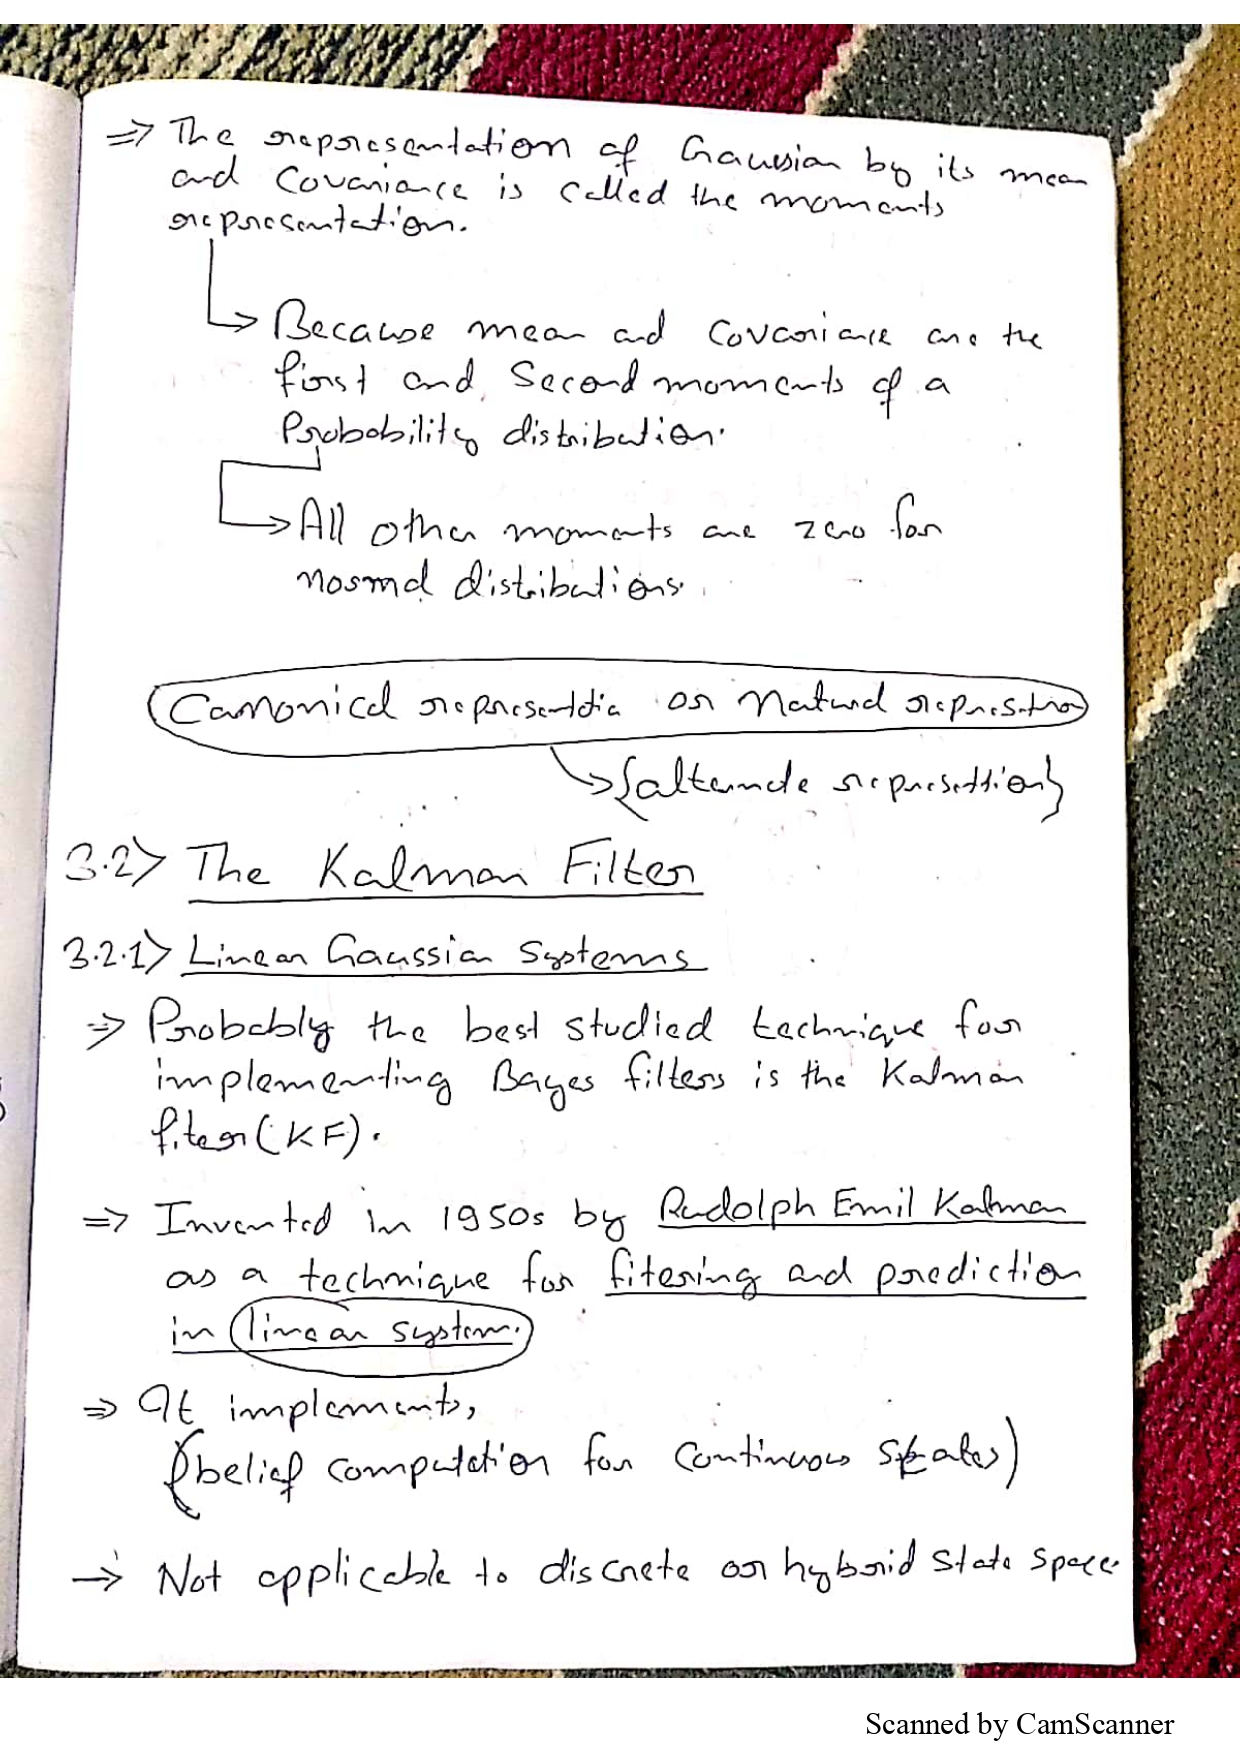 ⇒ The representation of Gaussian by its mean
and Covariance is called the moments
representation.
↳ Because mean and Covariance are the
first and Second moments of a
Probability distribution.
↳ All other moments are zero for
normal distributions.
Canonical representation or Natural representation
→ {alternate representation}
3.2> The Kalman Filter
3.2.1> Linear Gaussian Systems
⇒ Probably the best studied technique for
implementing Bayes filters is the Kalman
fiter (KF).
⇒ Invented in 1950s by Rudolph Emil Kalman
as a technique for fitering and prediction
in linear system.
⇒ It implements,
(belief computation for continuous states)
→ Not applicable to discrete or hybrid state space.
Scanned by CamScanner